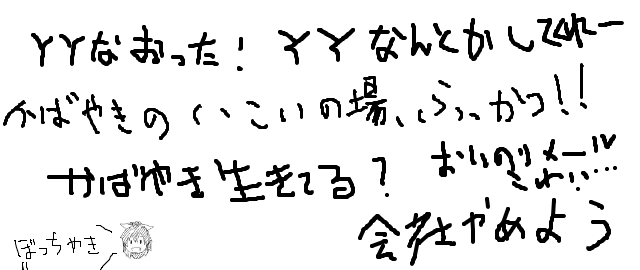 YYなおった！ YYなんとかしてくれー
かばやきのいこいの場、ふっかつ！！
かばやき生きてる？ おいのりメールこわい…
会社やめよう
ぼっちゃき